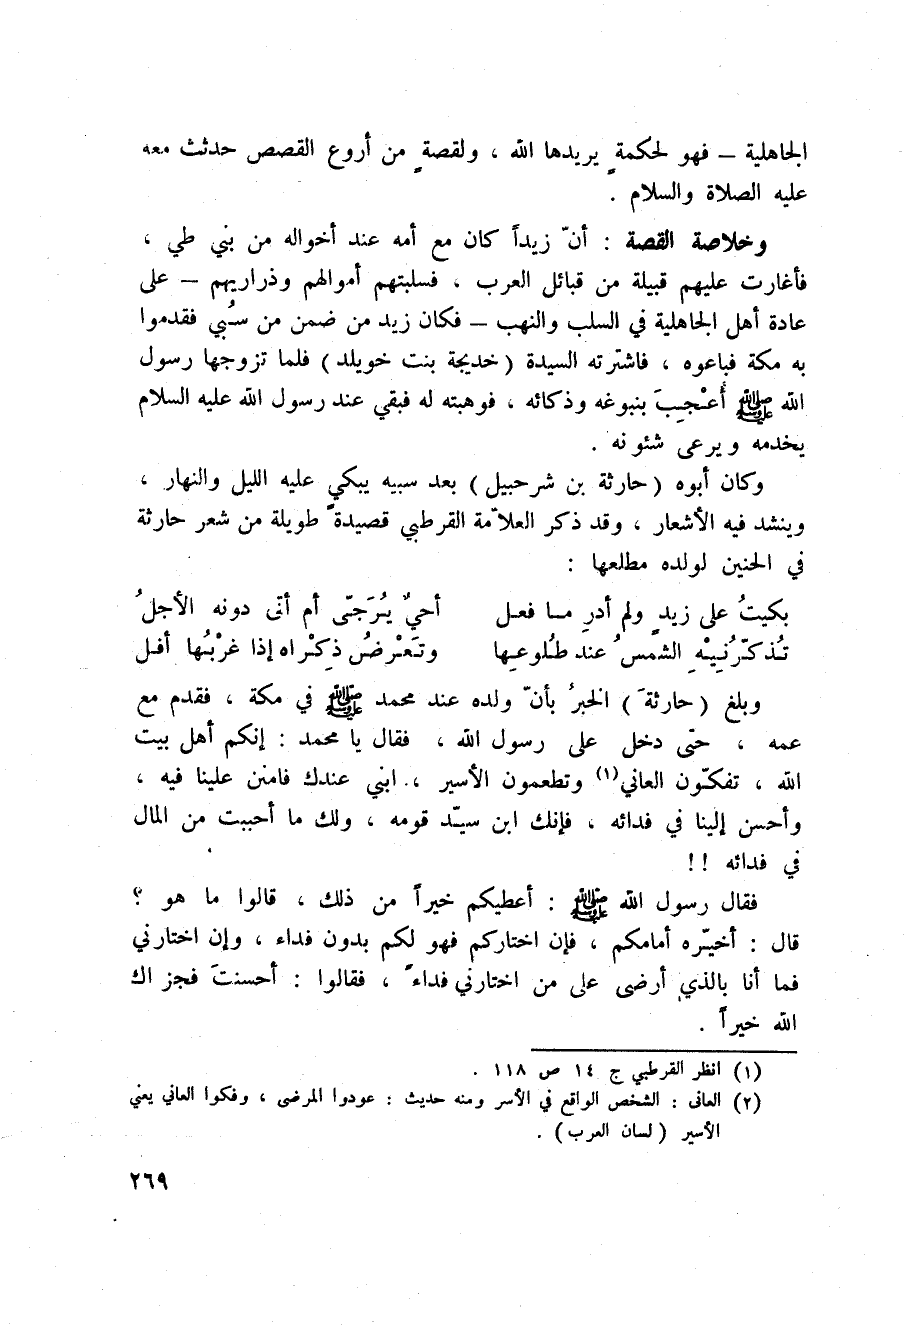 الجاهلية – فهو لحكمةٍ يريدها الله ، ولقصةٍ من أروع القصص حدثت معه
عليه الصلاة والسلام .
وخلاصة القصة : أنّ زيداً كان مع أمه عند أخواله من بني طي ،
فأغارت عليهم قبيلة من قبائل العرب ، فسلبتهم أموالهم وذراريهم – على
عادة أهل الجاهلية في السلب والنهب – فكان زيد من ضمن من سُبي فقدموا
به مكة فباعوه ، فاشترته السيدة ( خديجة بنت خويلد ) فلما تزوجها رسول
الله ﷺ أُعْجِبَ بنبوغه وذكائه ، فوهبته له فبقي عند رسول الله عليه السلام
يخدمه ويرعى شئونه .
وكان أبوه ( حارثة بن شرحبيل ) بعد سبيه يبكي عليه الليل والنهار ،
وينشد فيه الأشعار ، وقد ذكر العلاّمة القرطبي قصيدةً طويلة من شعر حارثة
في الحنين لولده مطلعها :
بكيتُ على زيدٍ ولم أدرِ مـا فعـل أحيٌ يُرَجَّى أم أتى دونه الأجلُ
تُذكّرُنِيْهِ الشمسُ عند طُلوعِها وتَعْرضُ ذِكْراه إذا غرْبُها أفـل
وبلغ ( حارثةَ ) الخبرُ بأنّ ولده عند محمد ﷺ في مكة ، فقدم مع
عمه ، حتّى دخل على رسول الله ، فقال يا محمد : إنكم أهل بيت
الله ، تفكّون العاني(١) وتطعمون الأسير ، ابني عندك فامنن علينا فيه ،
وأحسن إلينا في فدائه ، فإنك ابن سيّد قومه ، ولك ما أحببت من المال
في فدائه !!
فقال رسول الله ﷺ : أعطيكم خيراً من ذلك ، قالوا ما هو ؟
قال : أخيّره أمامكم ، فإن اختاركم فهو لكم بدون فداء ، وإن اختارني
فما أنا بالذي أرضى على من اختارني فداءً ، فقالوا : أحسنتَ فجزاك
الله خيراً .
(١) انظر القرطبي ج ١٤ ص ١١٨ .
(٢) العانى : الشخص الواقع في الأسر ومنه حديث : عودوا المرضى ، وفكوا العاني يعني
الأسير ( لسان العرب ) .
٢٦٩